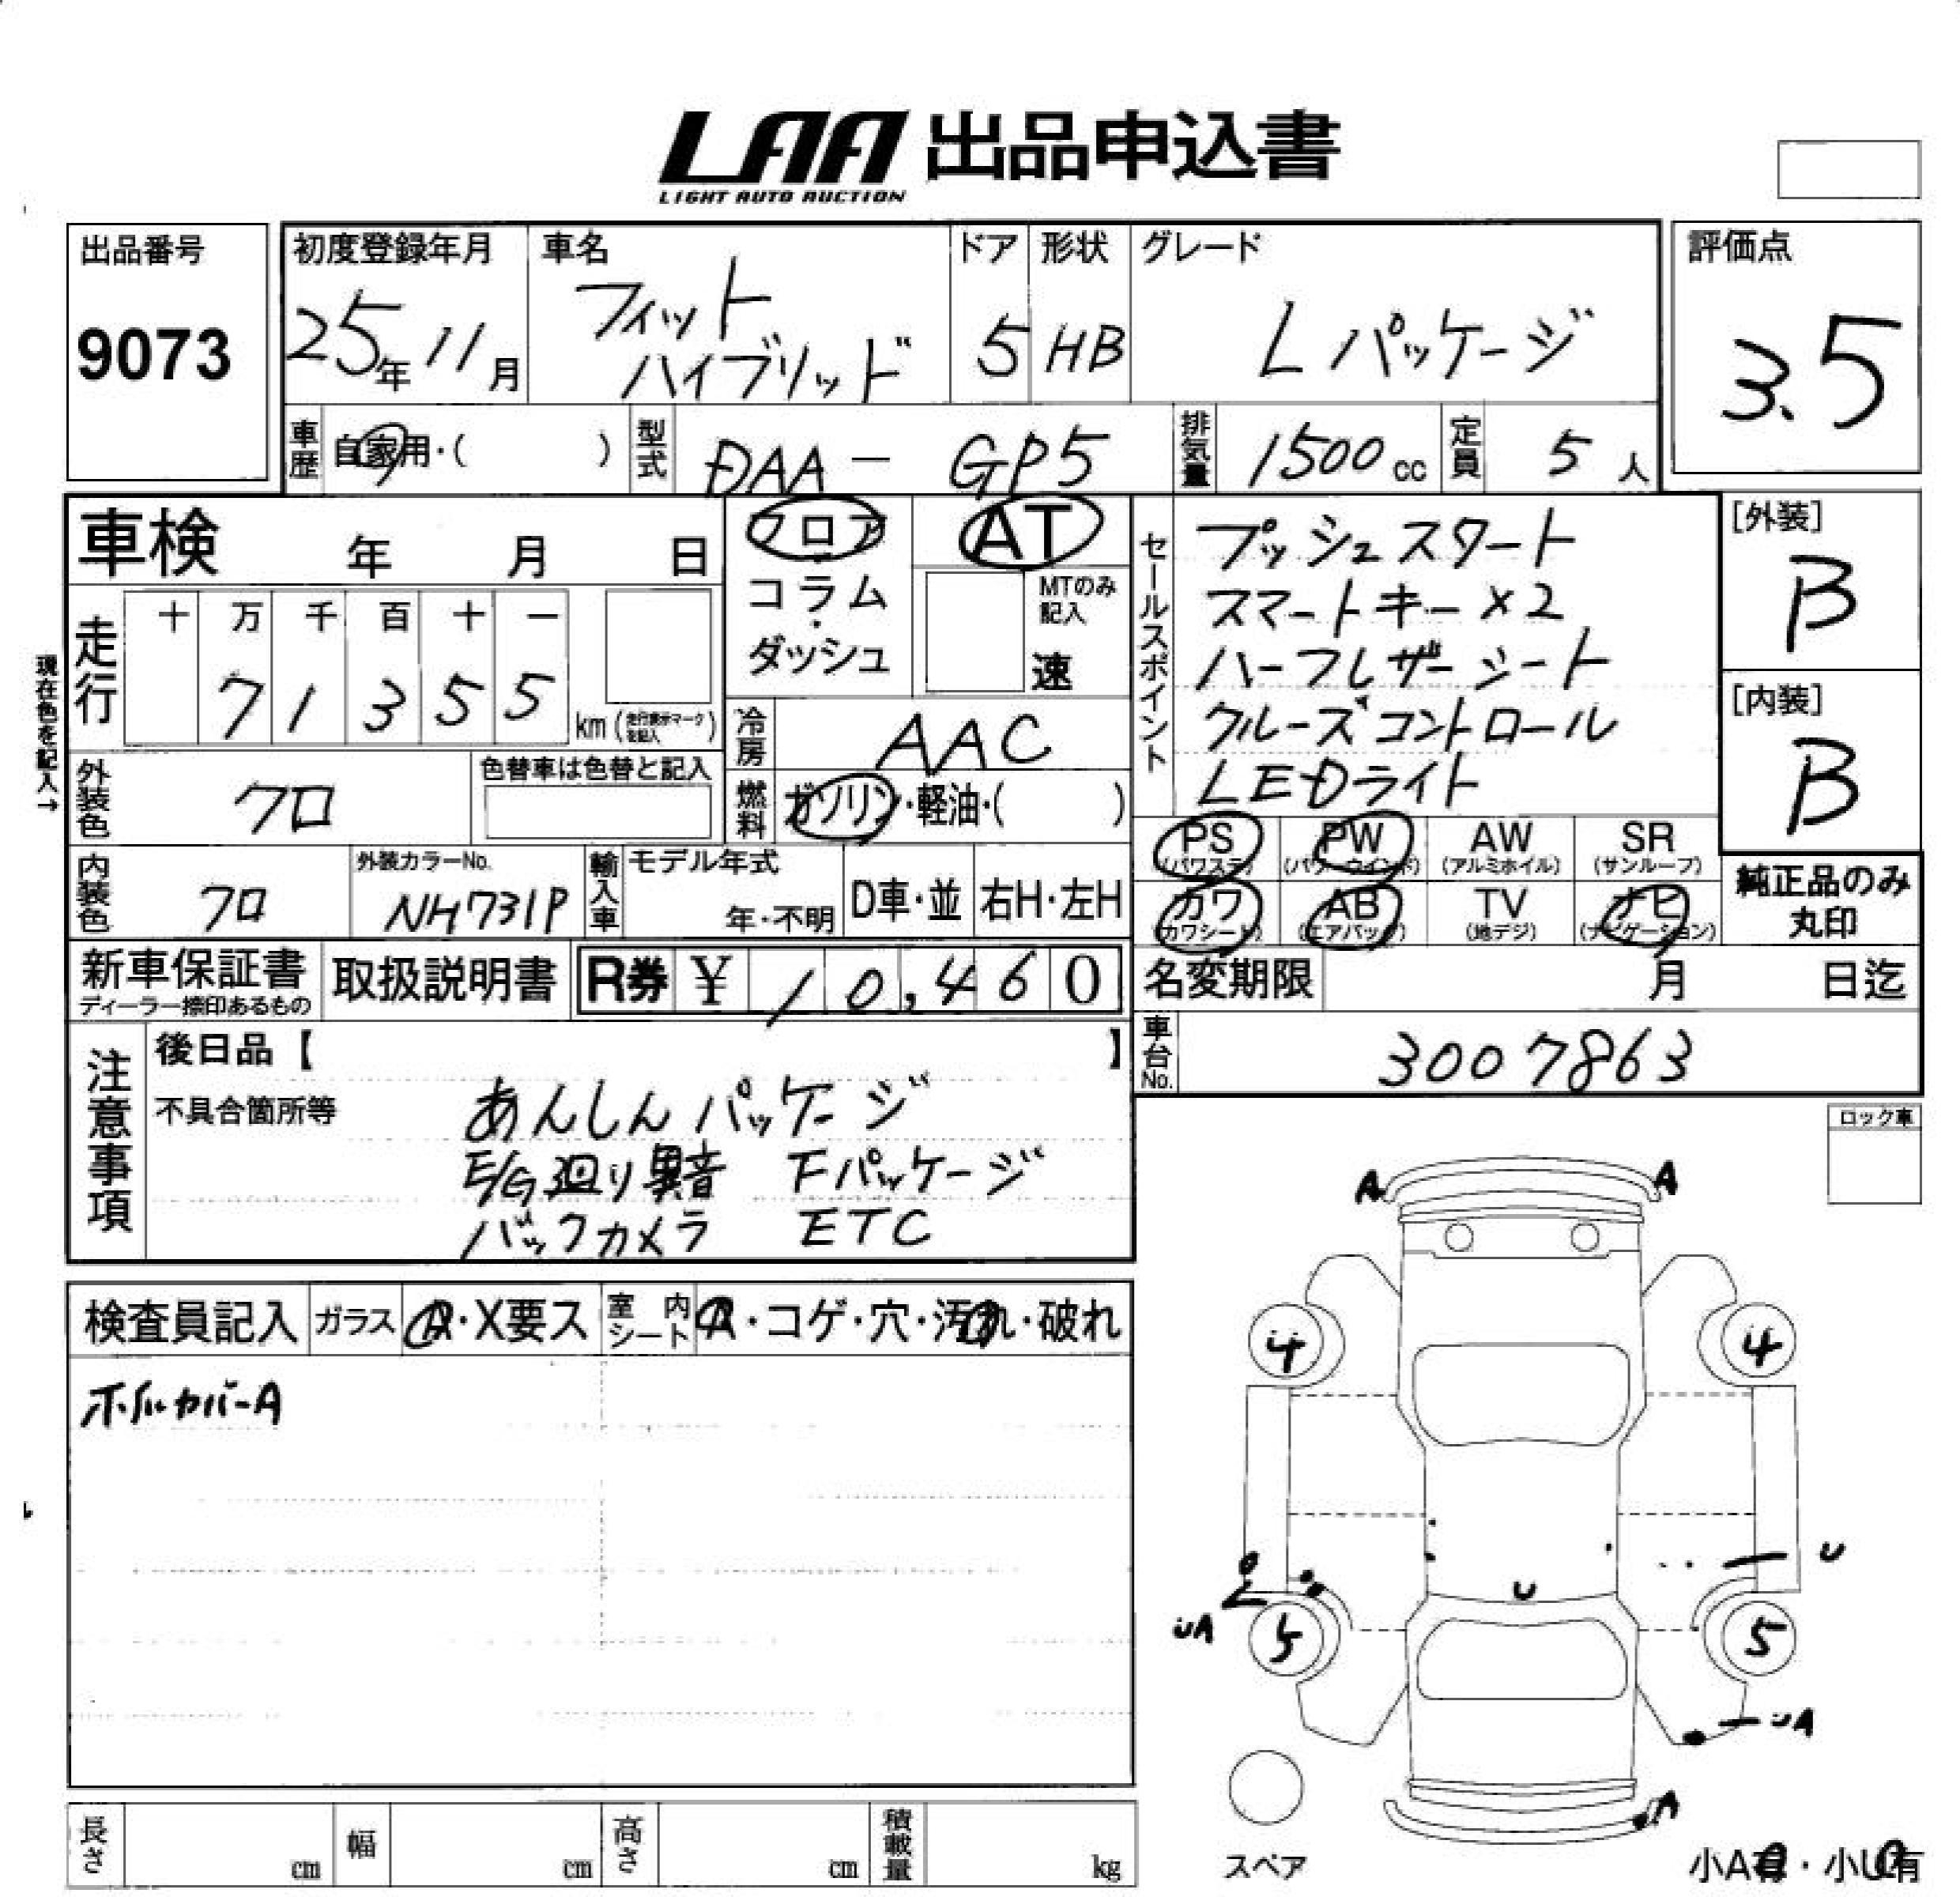 LAA 出品申込書
LIGHT AUTO AUCTION
出品番号
9073
初度登録年月
25年11月
車名
フィット
ハイブリッド
ドア
5
形状
HB
グレード
Lパッケージ
評価点
3.5
車歴 自家用・( )
型式 DAA-GP5
排気量 1500cc
定員 5人
車検 年 月 日
フロア
コラム
・
ダッシュ
AT
MTのみ
記入
速
セールスポイント
プッシュスタート
スマートキー×2
ハーフレザーシート
クルーズコントロール
LEDライト
[外装]
B
[内装]
B
現在色を記入→
走行
十 万 千 百 十 一
7 1 3 5 5
km(走行表示マークを記入)
冷房 AAC
外装色 クロ
色替車は色替と記入
燃料 ガソリン・軽油・( )
PS (パワステ)
PW (パワーウインド)
AW (アルミホイル)
SR (サンルーフ)
カワ (カワシート)
AB (エアバッグ)
TV (地デジ)
ナビ (ナビゲーション)
純正品のみ
丸印
内装色 クロ
外装カラーNo.
NH731P
輸入車
モデル年式
年・不明
D車・並
右H・左H
新車保証書
ディーラー捺印あるもの
取扱説明書
R券 ¥ 10,460
名変期限 月 日迄
車台No. 3007863
注意事項
後日品【 】
不具合箇所等
あんしんパッケージ
E/G廻り異音 Fパッケージ
バックカメラ ETC
ロック車
検査員記入
ガラス A・X要ス
室内シート A・コゲ・穴・汚れ・破れ
ホイルカバーA
A A
4 4
U
U
UA
5 5
UA
A
スペア
長さ cm
幅 cm
高さ cm
積載量 kg
小A有・小U有